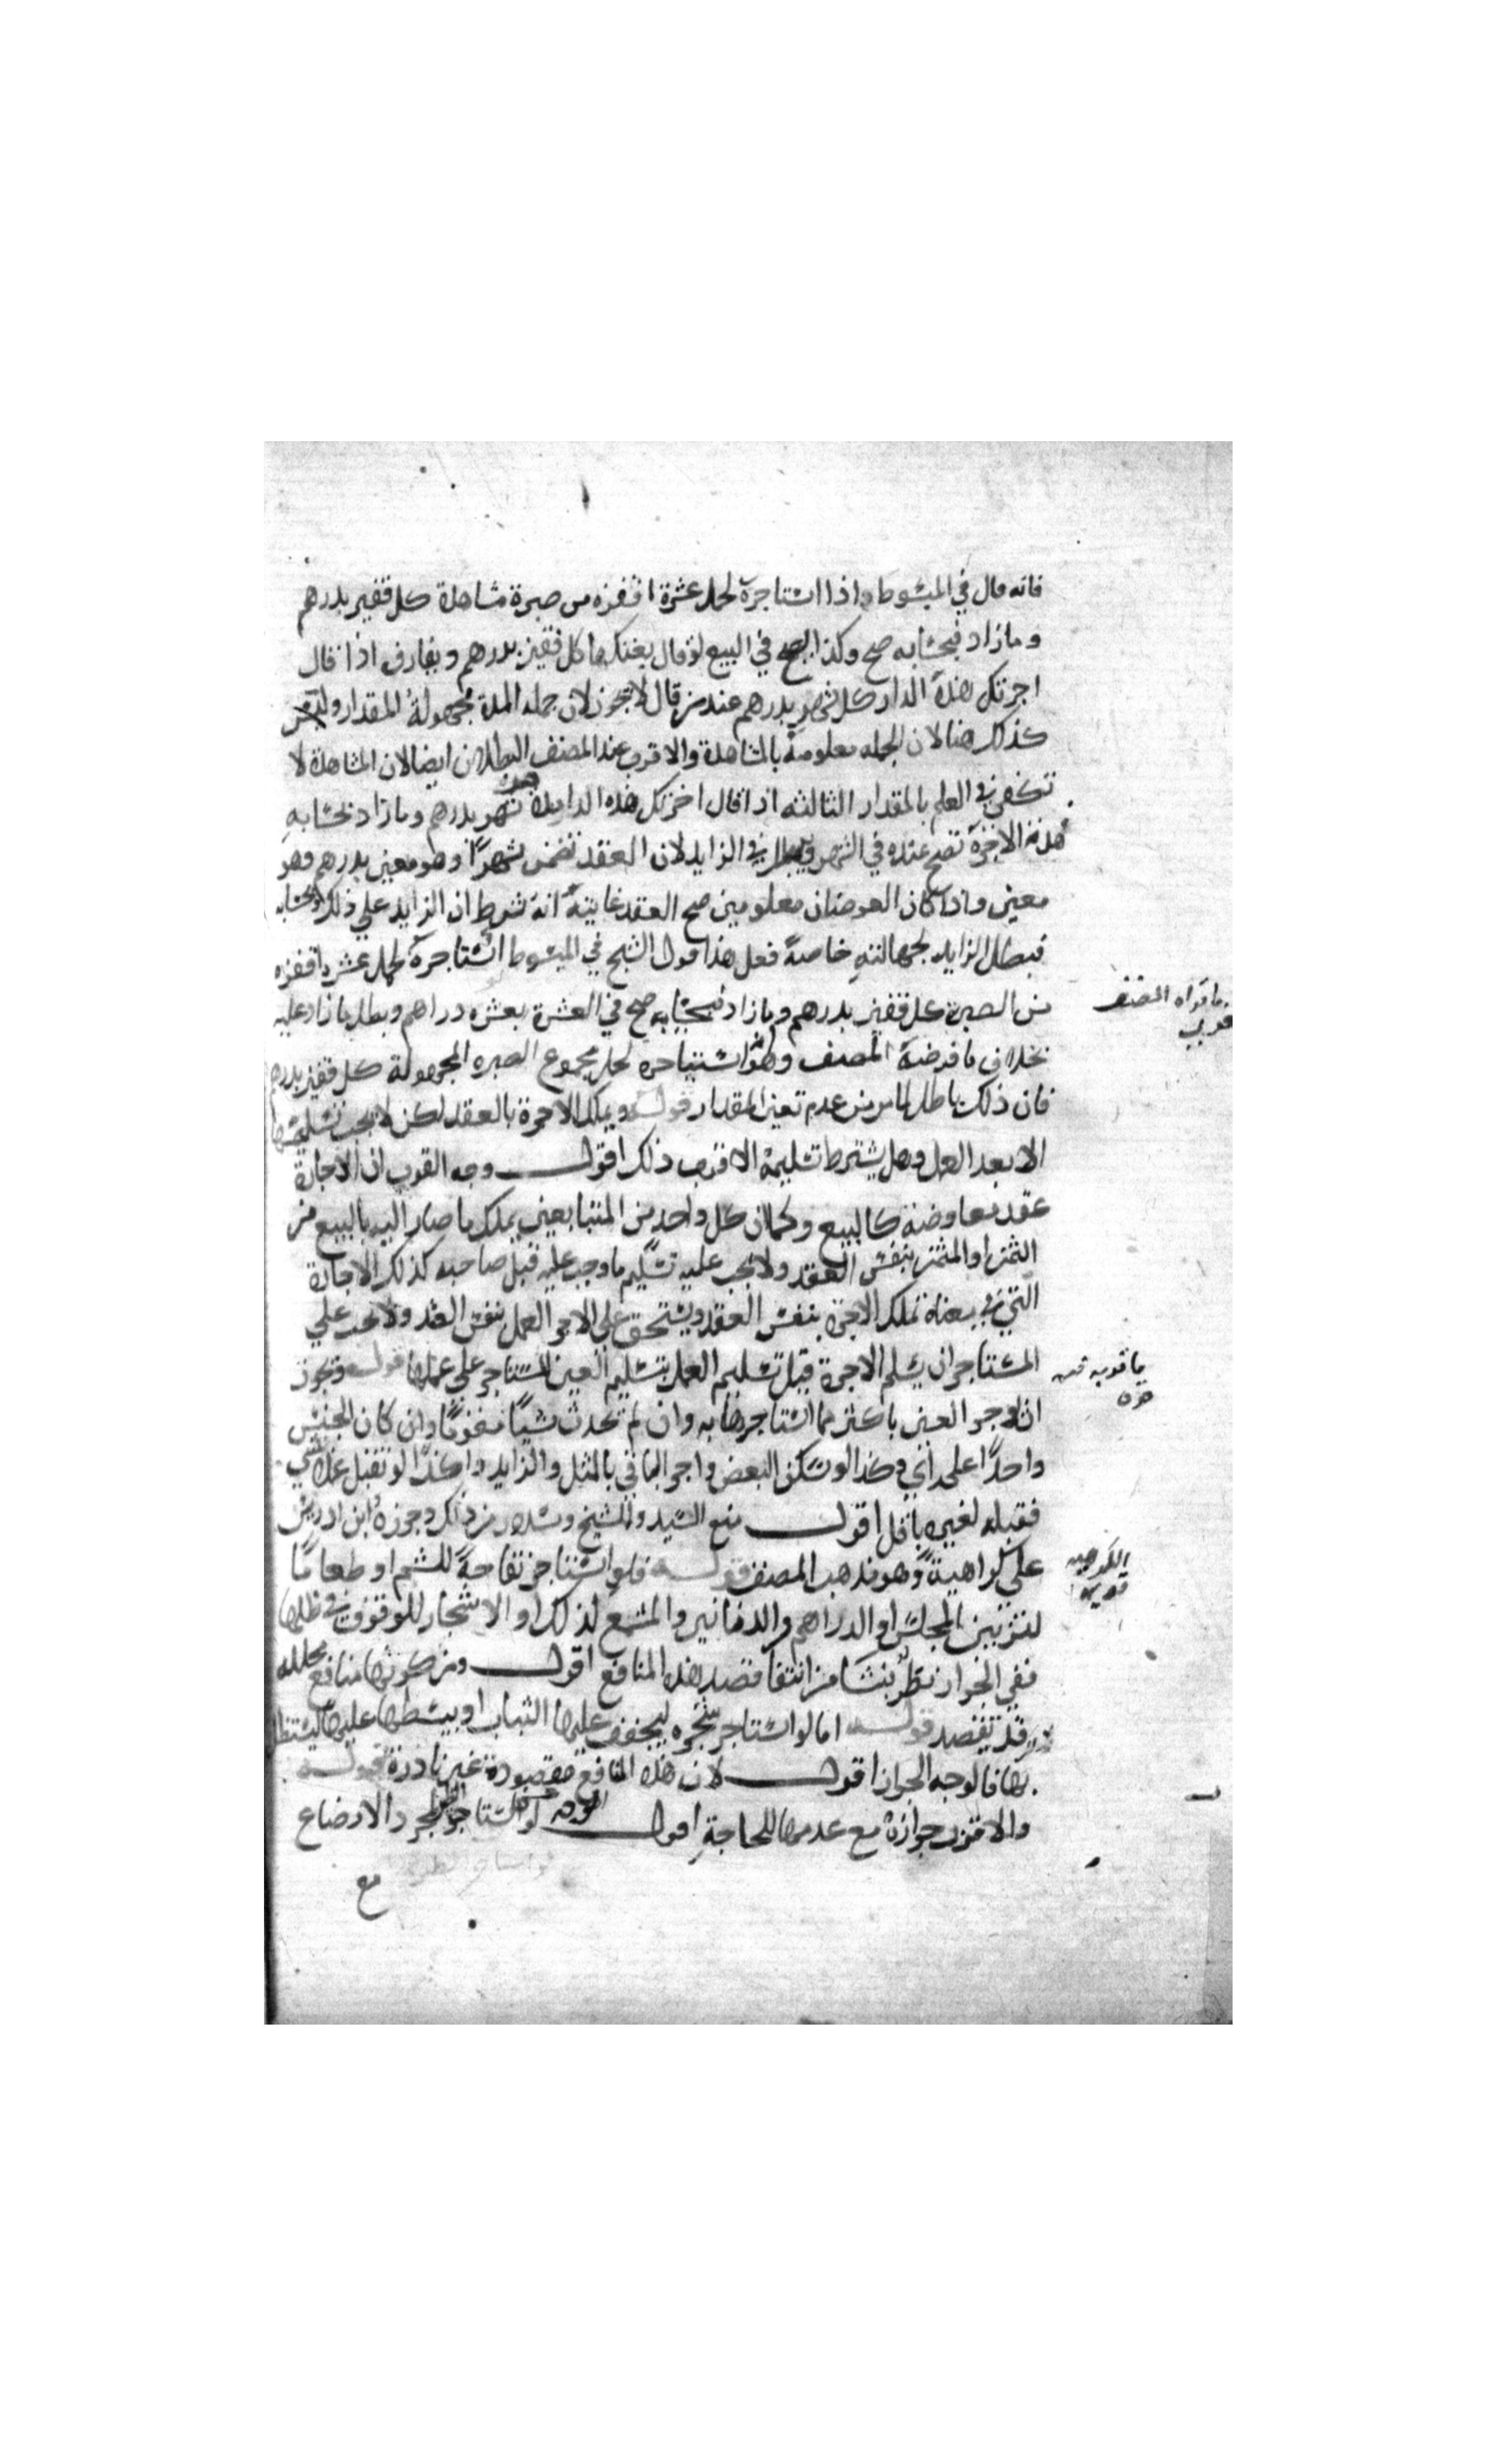 فانه قال في المبسوط واذا استاجره لحمل عشرة اقفزه من صبرة مشاهدة كل قفيز بدرهم
وما زاد فبحسابه صح وكذا يصح في البيع لو قال بعتكها كل قفيز بدرهم ويفارق اذا قال
اجرتك هذه الدار كل شهر بدرهم عند من قال لا يجوز لان جمله المدة مجهولة المقدار وليس
كذلك هنا لان الجمله معلومة بالمشاهدة والاقرب عند المصنف البطلان ايضا لان المشاهدة لا
تكفي في العلم بالمقدار الثالثه اذا قال اجرتك هذه الدار شهر بدرهم وما زاد بحسابه
هذه الاجرة تصح عنده في الشهر ويبطل في الزايد لان العقد تضمن شهرا وهو معين بدرهم وهو
معين واذا كان العوضان معلومين صح العقد غايته انه شرط ان الزايد على ذلك بحسابه
فبطل الزايد لجهالته خاصة فعلى هذا قول الشيخ في المبسوط استاجره لحمل عشره اقفزه
من الصبرة كل قفيز بدرهم وما زاد فبحسابه صح في العشرة بعشره دراهم وبطل ما زاد عليه
بخلاف ما فرضه المصنف وهو استيجاره لحمل مجموع الصبره المجهولة كل قفيز بدرهم
فان ذلك باطل لما مر من عدم تعين المقدار قوله ويملك الاجرة بالعقد لكن لا يجب تسليمها
الا بعد العمل وهل يشترط تسليمه الاقرب ذلك اقول وجه القرب ان الاجارة
عقد معاوضة كالبيع وكما ان كل واحد من المتبايعين يملك ما صار اليه بالبيع من
الثمن او المثمن بنفس العقد ولا يجب عليه تسليم ما وجب عليه قبل صاحبه كذلك الاجارة
التي في معناه تملك الاجرة بنفس العقد ويستحق على الاجير العمل بنفس العقد ولا يجب على
المستاجر ان يسلم الاجرة قبل تسليم العمل بتسليم العين المستاجر على عملها قوله ويجوز
ان يوجر العين باكثر مما استاجرها به وان لم يحدث شيئا مقوما وان كان الجنس
واحدا على راي وكذا لو سكن البعض واجر الباقي بالمثل والزايد وكذا لو تقبل عمل شي
فقبله لغيره باقل اقول منع السيد والشيخ وسلار من ذلك وجوزه ابن ادريس
على كراهية وهو مذهب المصنف قوله فلو استاجر تفاحة للشم او طعاما
لتزيين المجلس او الدراهم والدنانير والشمع لذلك او الاشجار للوقوف في ظلها
ففي الجواز نظر ينشا من انتفا قصد هذه المنافع اقول ومن كونها منافع محلله
قد تقصد قوله اما لو استاجر شجره ليجفف عليها الثياب او يبسطها عليها ليستظل
بها فالوجه الجواز اقول لان هذه المنافع مقصودة غير نادرة قوله
والاقرب جوازه مع عدمها للحاجة اقول لو استاجر لمجرد الارضاع
مع
ما قواه المصنف
قوي
ما قربه
الكراهيه
قويه